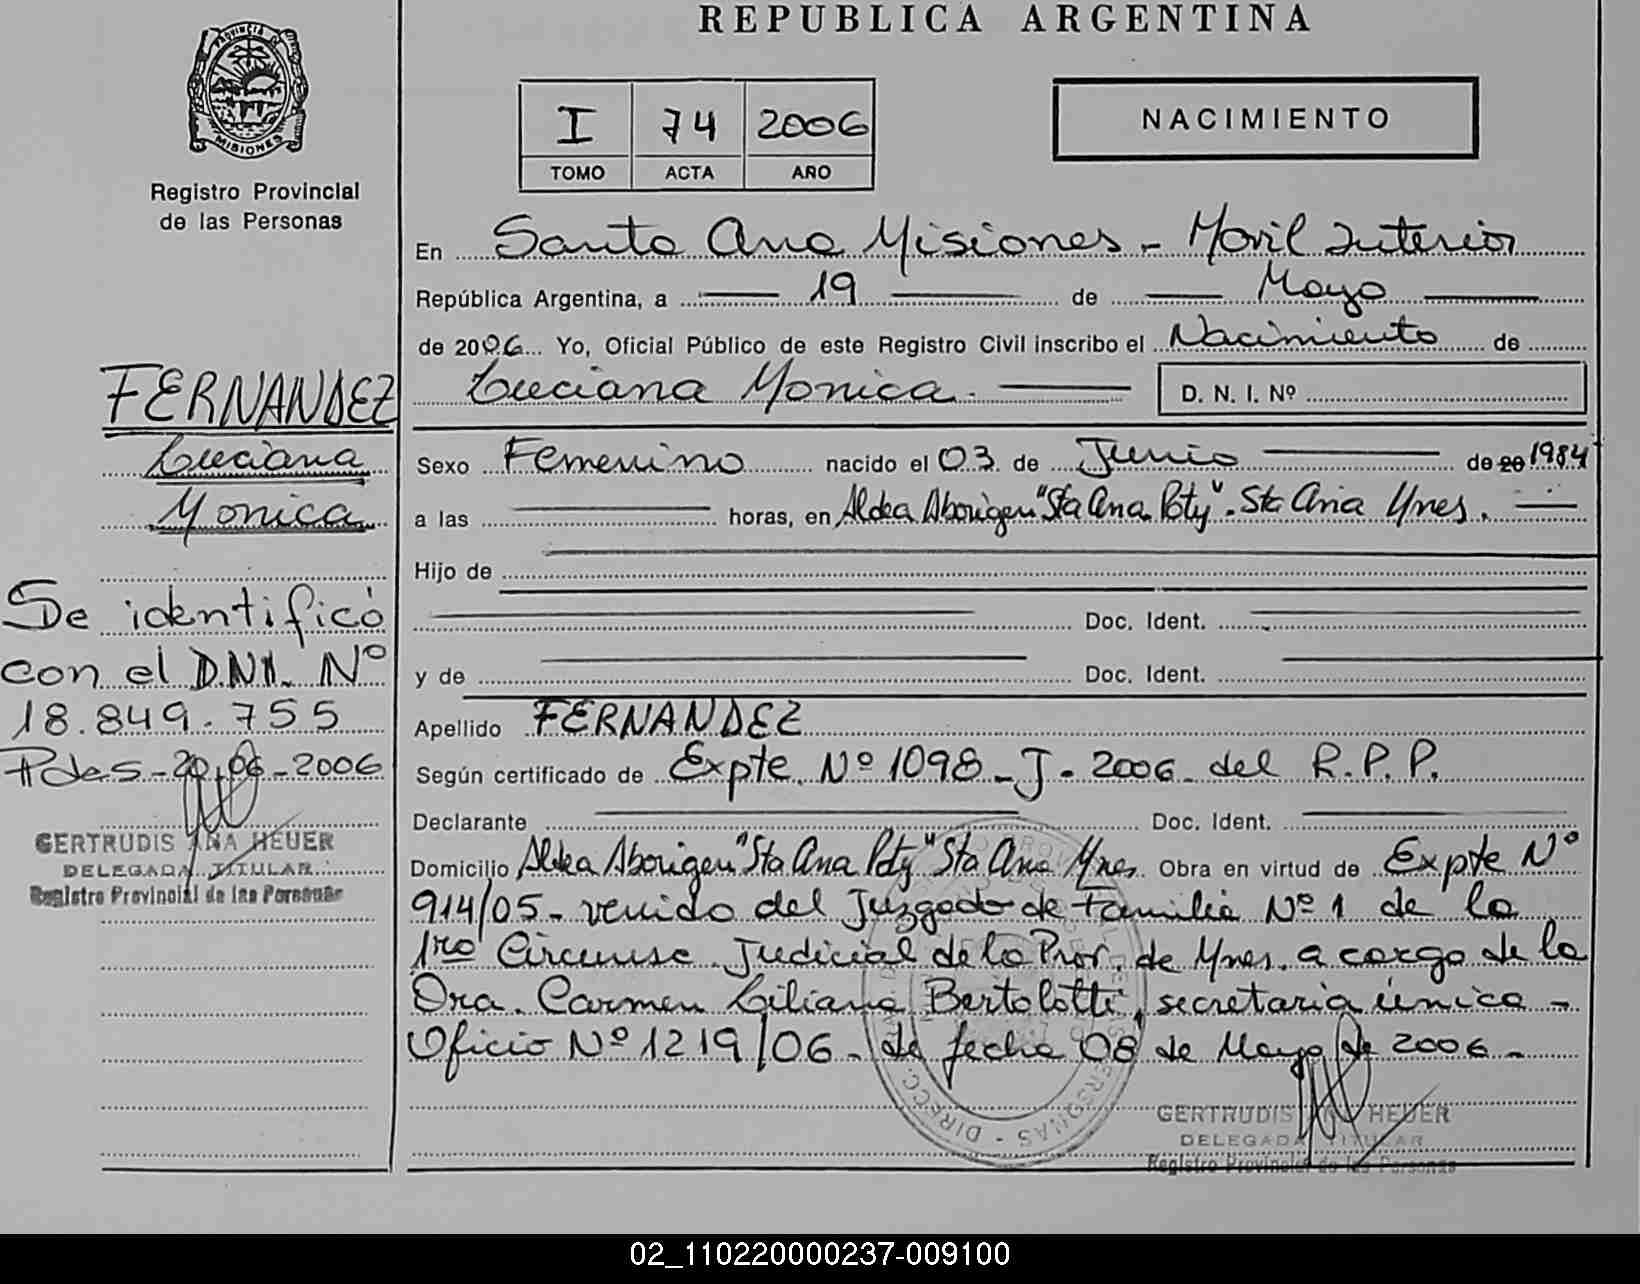 REPUBLICA ARGENTINA
PROVINCIA DE
MISIONES
Registro Provincial
de las Personas
I 74 2006
TOMO ACTA AÑO
NACIMIENTO
En Santa Ana Misiones - Movil Interior
República Argentina, a 19 de Mayo
de 2006 Yo, Oficial Público de este Registro Civil inscribo el Nacimiento de
Luciana Monica. D. N. I. Nº
FERNANDEZ
Luciana
Monica
Sexo Femenino nacido el 03 de Junio de 20 1984
a las horas, en Aldea Aborigen "Sta Ana Poty". Sta Ana Mnes.
Hijo de
Doc. Ident.
y de Doc. Ident.
Apellido FERNANDEZ
Según certificado de Expte. Nº 1098 - J - 2006 - del R.P.P.
Declarante Doc. Ident.
Domicilio Aldea Aborigen "Sta Ana Poty" Sta Ana Mnes. Obra en virtud de Expte Nº
914/05 - venido del Juzgado de Familia Nº 1 de la
1ra Circunsc. Judicial de la Prov. de Mnes. a cargo de la
Dra. Carmen Liliana Bertolotti, secretaria única -
Oficio Nº 1219/06 - de fecha 08 de Mayo de 2006 -
GERTRUDIS ANA HEUER
DELEGADA TITULAR
Registro Provincial de las Personas
Se identificó
con el D.N.I. Nº
18.849.755
Pdas - 20.06 - 2006
GERTRUDIS ANA HEUER
DELEGADA TITULAR
Registro Provincial de las Personas
02_110220000237-009100